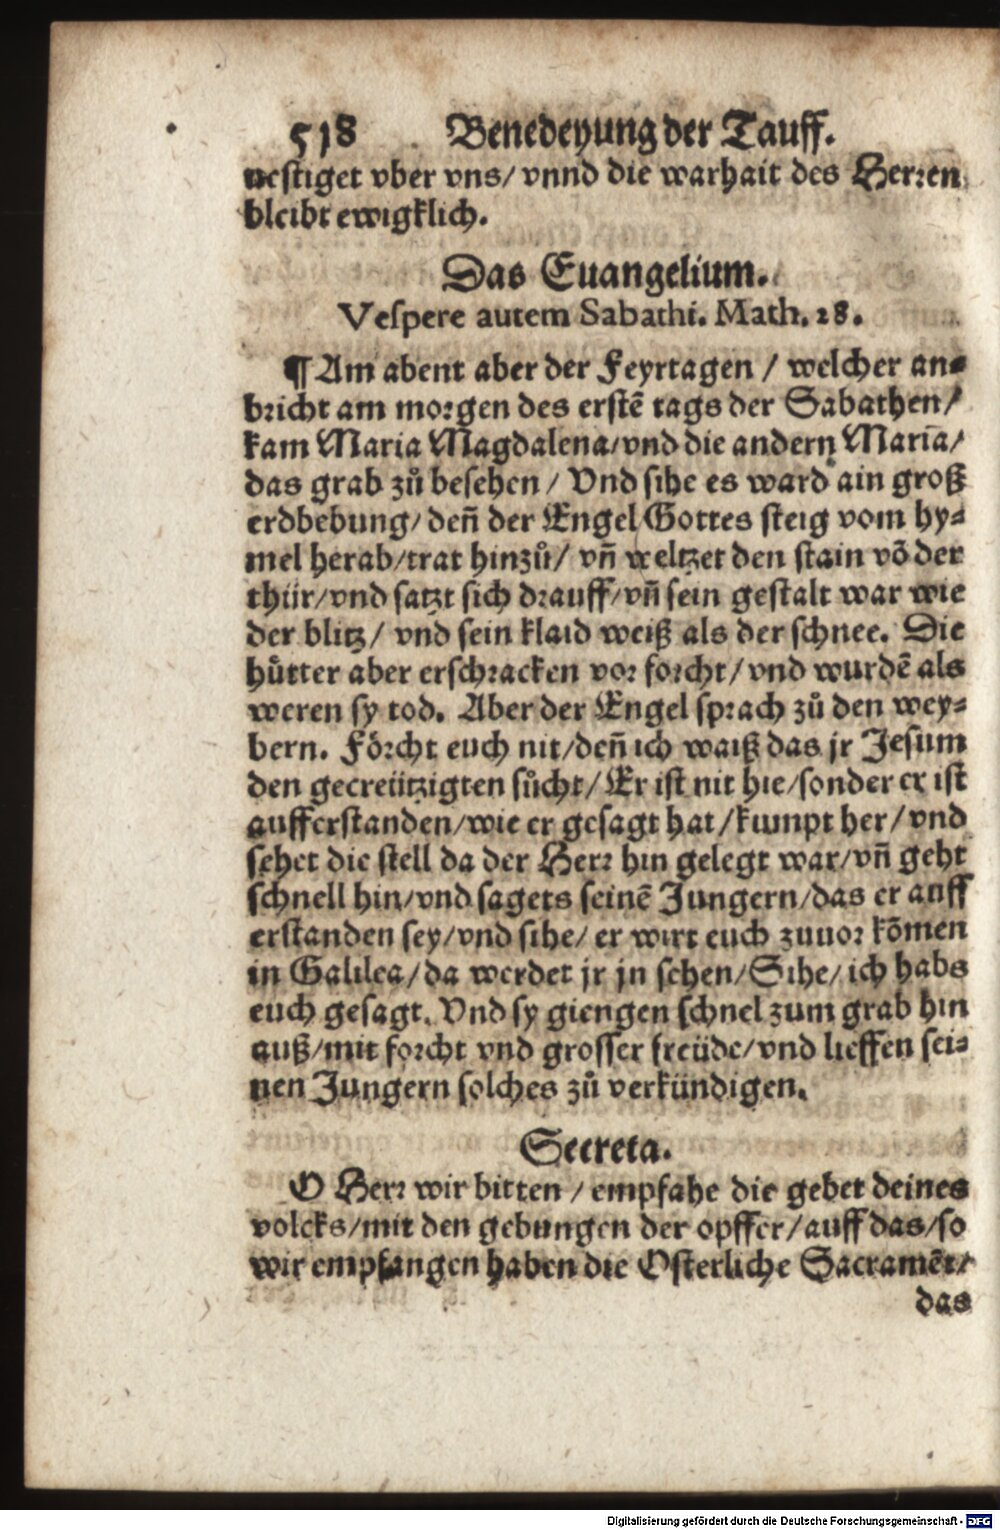 518 Benedeyung der Tauff.
uestiget vber vns/ vnnd die warhait des Herren
bleibt ewigklich.
Das Euangelium.
Vespere autem Sabathi. Math. 28.
¶ Am abent aber der Feyrtagen / welcher an⸗
bricht am morgen des erstē tags der Sabathen/
kam Maria Magdalena/vnd die andern Maria/
das grab zů besehen / Vnd sihe es ward ain groß
erdbebung/ deñ der Engel Gottes steig vom hy⸗
mel herab/trat hinzů/ vñ weltzet den stain võ der
thür/vnd satzt sich drauff/vñ sein gestalt war wie
der blitz/ vnd sein klaid weiß als der schnee. Die
hůtter aber erschracken vor forcht/vnd wurdē als
weren sy tod. Aber der Engel sprach zů den wey⸗
bern. Förcht euch nit/deñ ich waiß das jr Jesum
den gecreützigten sůcht/ Er ist nit hie/sonder er ist
aufferstanden/wie er gesagt hat/kumpt her/ vnd
sehet die stell da der Herr hin gelegt war/vñ geht
schnell hin/vnd sagets seinē Jungern/das er auff
erstanden sey/vnd sihe/ er wirt euch zuuor kõmen
in Galilea/da werdet jr jn sehen/Sihe/ ich habs
euch gesagt. Vnd sy giengen schnel zum grab hin
auß/mit forcht vnd grosser freüde/vnd lieffen sei⸗
nen Jungern solches zů verkündigen.
Secreta.
O Herr wir bitten / empfahe die gebet deines
volcks/mit den gebungen der opffer/auff das/so
wir empfangen haben die Osterliche Sacramēt/
das
Digitalisierung gefördert durch die Deutsche Forschungsgemeinschaft - DFG